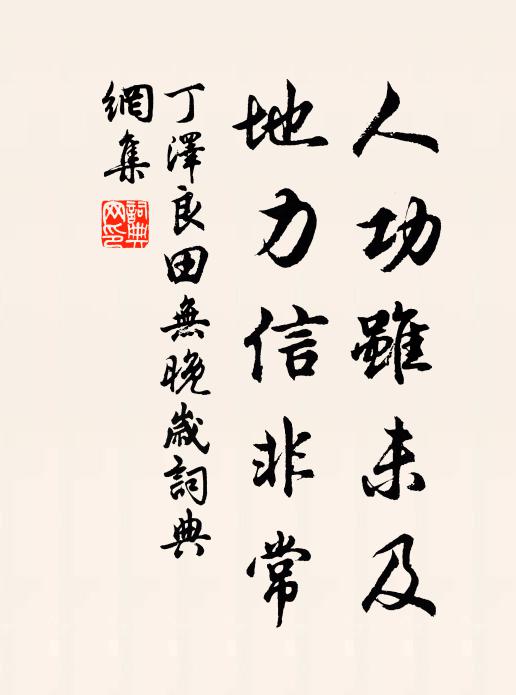 人功雖未及
地力信非常
丁澤良田無晚歲詞典
網集
詞典
网印